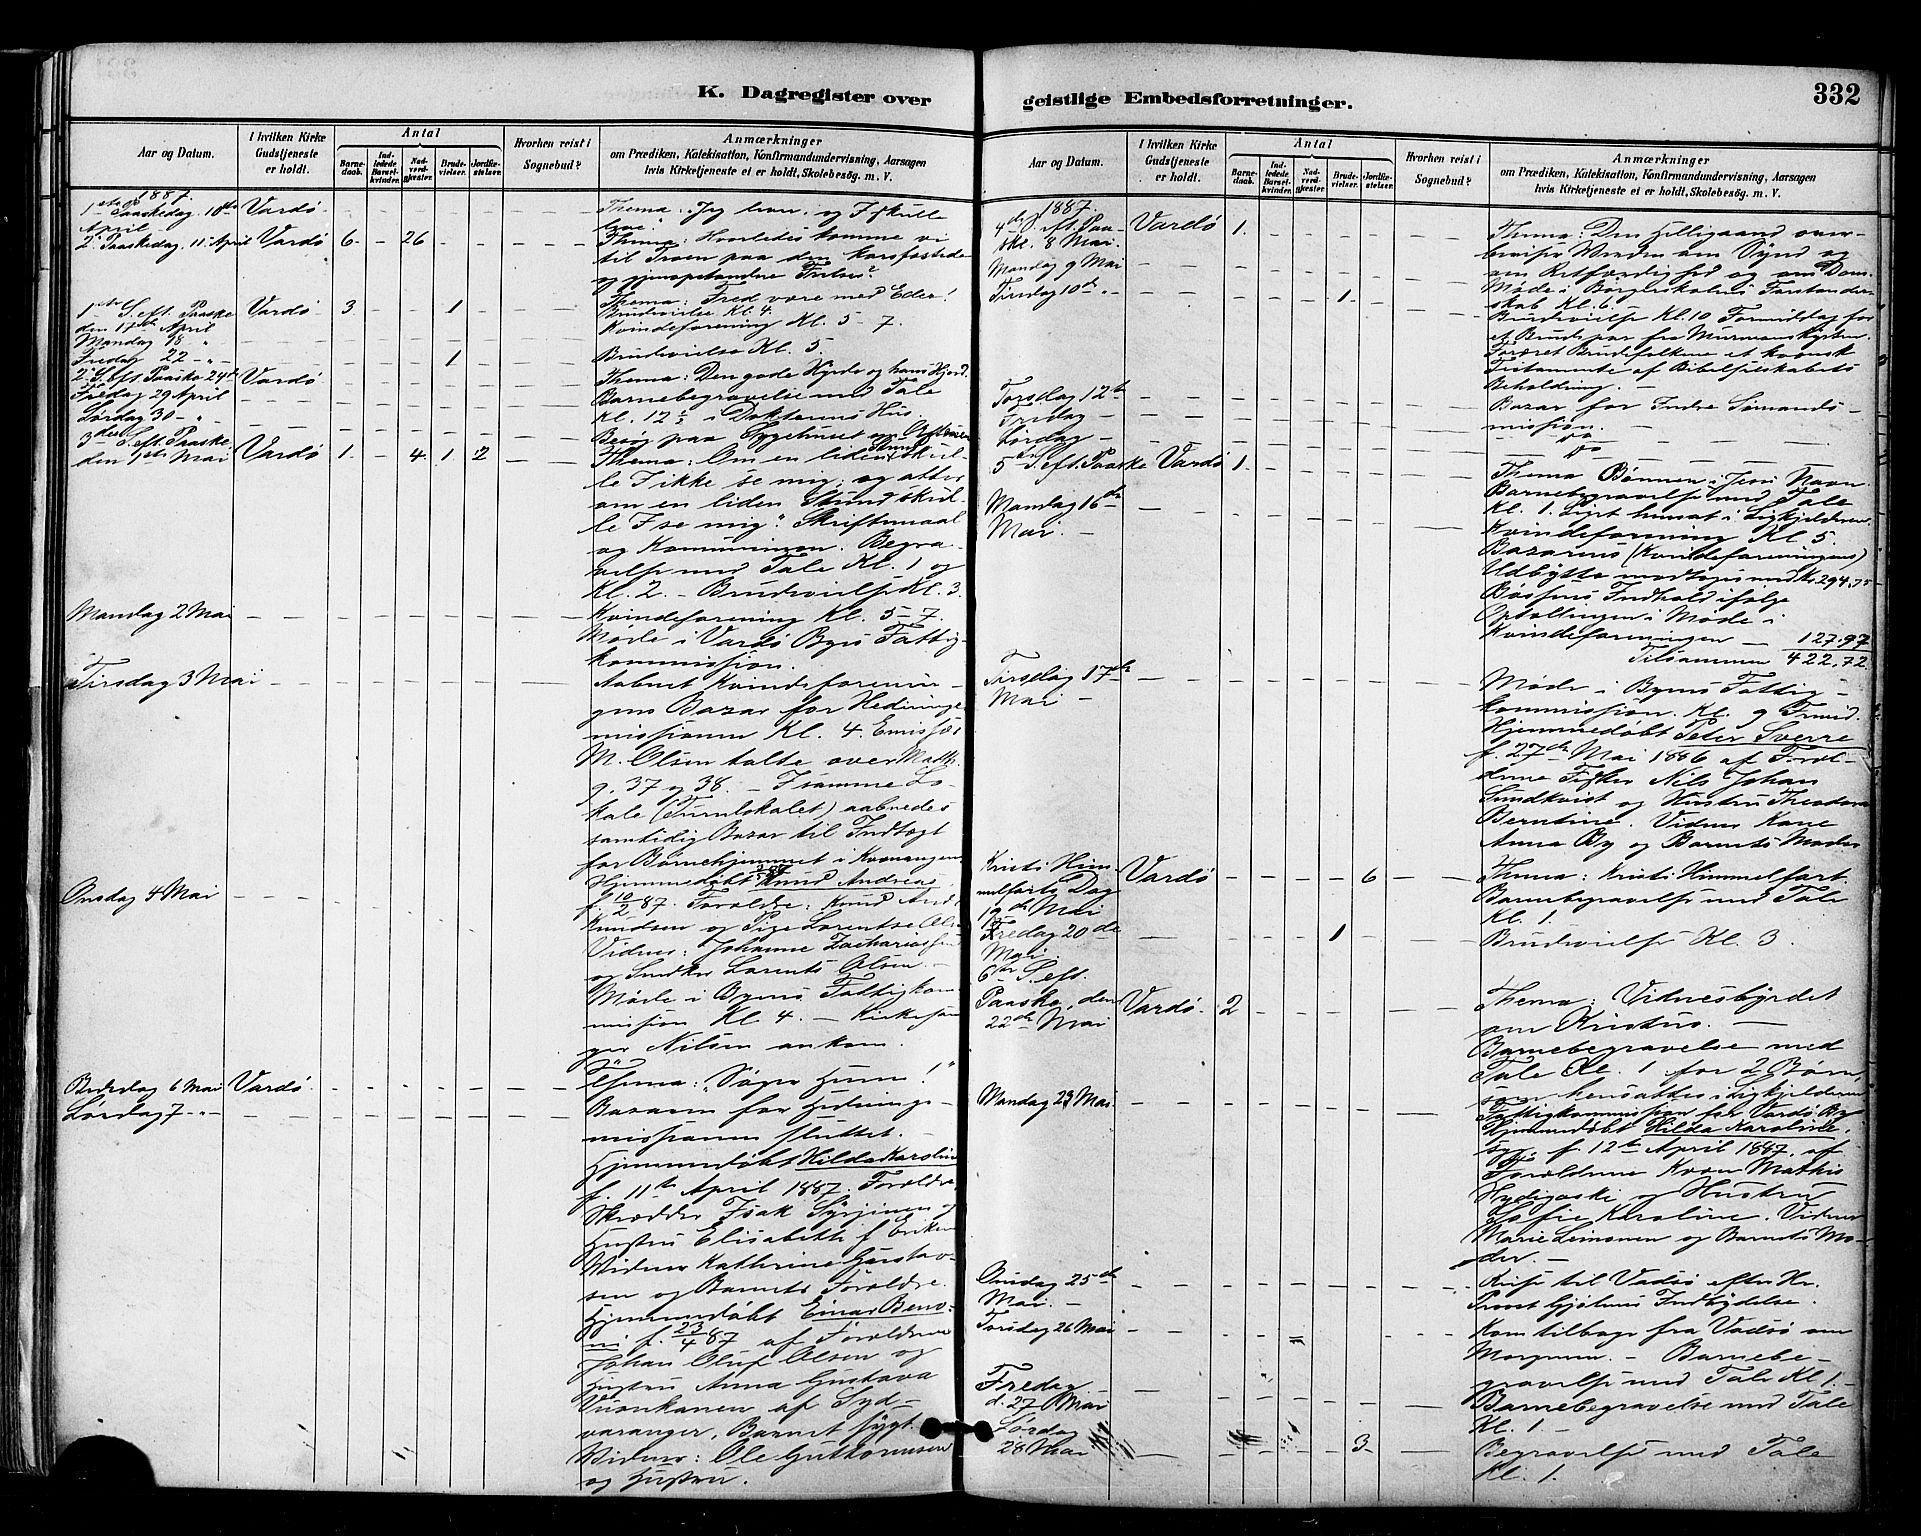 K. Dagregister over
Aar og Datum.
I hvilken Kirke Gudstjeneste er holdt.
Antal
Barnedaab.
Indledede Barselkvinder.
Nadverdgjester.
Brudevielser.
Jordfæstelser.
Hvorhen reist i Sognebud?
Anmærkninger
om Prædiken, Katekisation, Konfirmandundervisning, Aarsagen
hvis Kirketjeneste ei er holdt, Skolebesøg. m. V.
1887.
1ste Paaskedag 10de April Vardø
Thema: Jeg lever, og I skulle
leve."
2. Paaskedag, 11 April Vardø 6 - 26 - -
Thema: Hvorledes komme vi
til Troen paa den korsfæstede
og gjenopstandne Frelser?
1ste S. eft. Paaske Vardø 3 - - 1 -
den 17de April
Thema: Fred være med Eder!
Brudevielse Kl. 4.
Mandag 18 "
Kvindeforening Kl. 5-7.
Fredag 22 - " - 1
Brudevielse Kl. 5
2. S. eft. Paaske 24de Vardø
Thema: Den gode Hyrde og hans Hjord.
Fredag 29 April
Barnebegravelse med Tale
Kl. 12½ i Doktorens Hus.
Lørdag 30 - "
Besøg paa Sygehuset om Aftenen
3die S. eft. Paaske
den 1ste Mai Vardø 1 - 4 1 2
Thema: Om en liden Stund skul-
le I ikke se mig; og atter
om en liden Stund skul-
le I se mig". Skriftemaal
og Kommunion. Begra-
velse med Tale Kl. 1 og
Kl. 2. - Brudevielse Kl. 3.
Mandag 2 Mai
Kvindeforening Kl. 5-7.
Møde i Vardø Byes Fattig-
kommission.
Tirsdag 3 Mai
Aabnet Kvindeforenin-
gens Bazar for Hedninge-
missionen Kl. 4. Emissær
M. Olsen talte over Matth.
9. 37 og 38. - I samme Lo-
kale (Turnlokalet) aabnedes
samtidig Bazar til Indtægt
for Børnehjemmet i Kvænangen
Onsdag 4 Mai
Hjemmedøbt Knud Andreas,
f. 10/2 87. Forældre: Knud Andr.
Knudsen og Pige Lorentse Olsen
Vidner: Johanne Zachariassen
og Snedker Lorents Olsen. -
Møde i Byens Fattigkom-
mission Kl. 4. - Kirkesan-
ger Nilsen ankom.
Bededag 6 Mai Vardø
Thema: "Søger Herren!"
Lørdag 7 - " -
Bazaren for Hednings-
missionen sluttet. -
Hjemmedøbt Hilda Karoline
f. 11te April 1887. Forældre,
Skrædder Isak Sørjinen og
Hustru Elisabeth f. Eriksen
Vidner Kathrine Gustav-
sen og Barnets Forældre.
Hjemmedøbt Einar Beno-
ni f. 23/4 87 af Forældrene
Johan Oluf Olsen og
Hustru Anna Gustava
af Syd-
varanger, Barnet sygt.
Vidner: Ole Guttormsen
og Hustru.
geistlige Embedsforretninger.
332
Aar og Datum.
I hvilken Kirke Gudstjeneste er holdt.
Antal
Barnedaab.
Indledede Barselkvinder.
Nadverdgjester.
Brudevielser.
Jordfæstelser.
Hvorhen reist i Sognebud?
Anmærkninger
om Prædiken, Katekisation, Konfirmandundervisning, Aarsagen
hvis Kirketjeneste ei er holdt, Skolebesøg. m. V.
1887.
4de S. eft. Paa- Vardø 1.
ske. 8 Mai.
Thema: Den Helligaand over-
beviser Verden om Synd og
om Retfærdighed og om Dom.
Mandag 9 Mai
Møde i Borgerskolens Forstander-
skab Kl. 6.
Tirsdag 10de " 1
Brudevielse Kl. 10 Formiddag for
et Brudepar fra Murmanskysten.
Foræret Brudefolkene et kvænsk
Testamente af Bibelselskabets
Beholdning. -
Torsdag 12te
Bazar for Indre Sømands-
mission. -
Fredag -
do
Lørdag -
do
5te S. eft. Paaske Vardø 1
Thema Bønnen i Jesu Navn
Mandag 16de
Mai. -
Barnebegravelse med Tale
Kl. 1. Liget hensat i Ligkjelderen
Kvindeforening Kl. 5.
Bazarens (Kvindeforeningens)
Udbytte modtoges med Kr. 294,75
Bøssens Indhold ifølge
Optællingen i Møde i
Kvindeforeningen - 127.97
Tilsammen 422,72.
Tirsdag 17de
Mai -
Møde i Byens Fattig-
kommission. Kl. 9 Formid.
Hjemmedøbt Peter Sverre
f. 27de Mai 1886 af Foræl-
drene Fisker Nils Johan
Sundkvist og Hustru Theodora
Berntine. Vidner Kone
Anna By og Barnets Moder
Kristi Him-
melfarts Dag Vardø 6
19de Mai
Thema: Kristi Himmelfart
Barnebegravelse med Tale
Kl. 1.
Fredag 20de 1
Mai.
Brudevielse Kl. 3.
6te S. eft.
Paaske, den Vardø 2
22de Mai
Thema: Vidnesbyrdet
om Kristus. -
Barnebegravelse med
Tale Kl. 1 for 2 Børn,
som hensattes i Ligkjelderen
Mandag 23 Mai.
Fattigkommission for Vardø By
Hjemmedøbt Hilda Karoline,
syg, f. 12te April 1887, af
Forældrene Kvæn Mathis
og Hustru
Sofie Karoline. Vidner
Marie Leinonen og Barnets Mo-
der. -
Onsdag 25de
Mai. -
Reise til Vadsø efter Hr.
Provst Gjølmes Indbydelse.
Torsdag 26 Mai
Kom tilbage fra Vadsø om
Morgenen. - Barnebe-
gravelse med Tale Kl 1. -
Fredag
d. 27 Mai
Barnebegravelse med Tale
Kl. 1. -
Lørdag
28 Mai 3
Begravelse med Tale
Kl. 1.